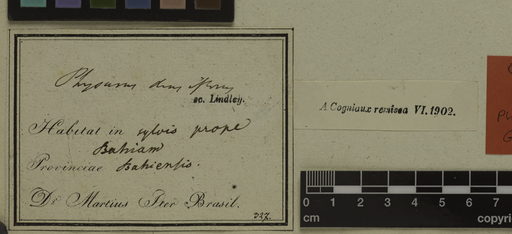 Physurus
sc. Lindley.
Habitat in sylvis prope
Bahiam
Provinciae Bahiensis.
Dr Martius Iter Brasil.
327.
A Cogniaux remissa VI, 1902.
0 1 2 3 4 5 6 7
cm
copyri